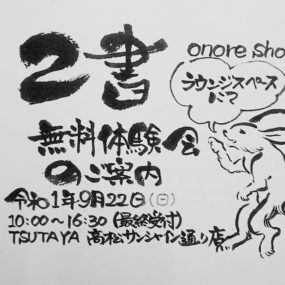 onore sho
2書
ラウンジスペース
にて
無料体験会
のご案内
令和1年9月22日(日)
10:00〜16:30(最終受付)
TSUTAYA 高松サンシャイン通り店